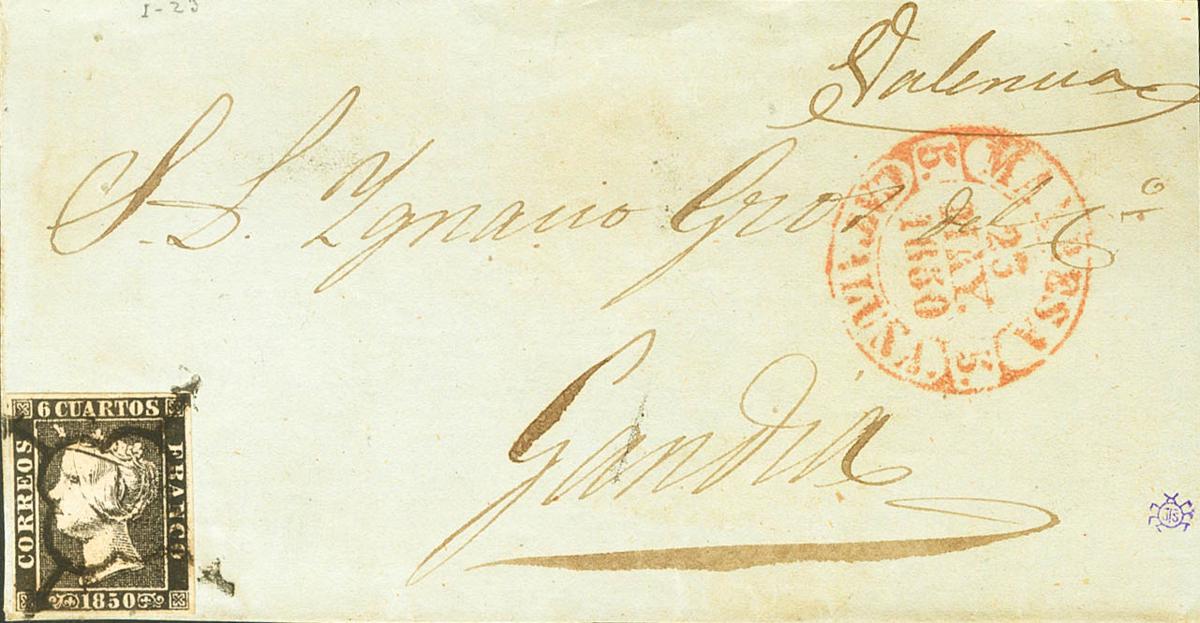 1-23
Valencia
S. D. Ygnacio Gros del C.º
Gandia
MANRESA
5
25
ABR
1850
5
6 CUARTOS
CORREOS
FRANCO
1850
JJS